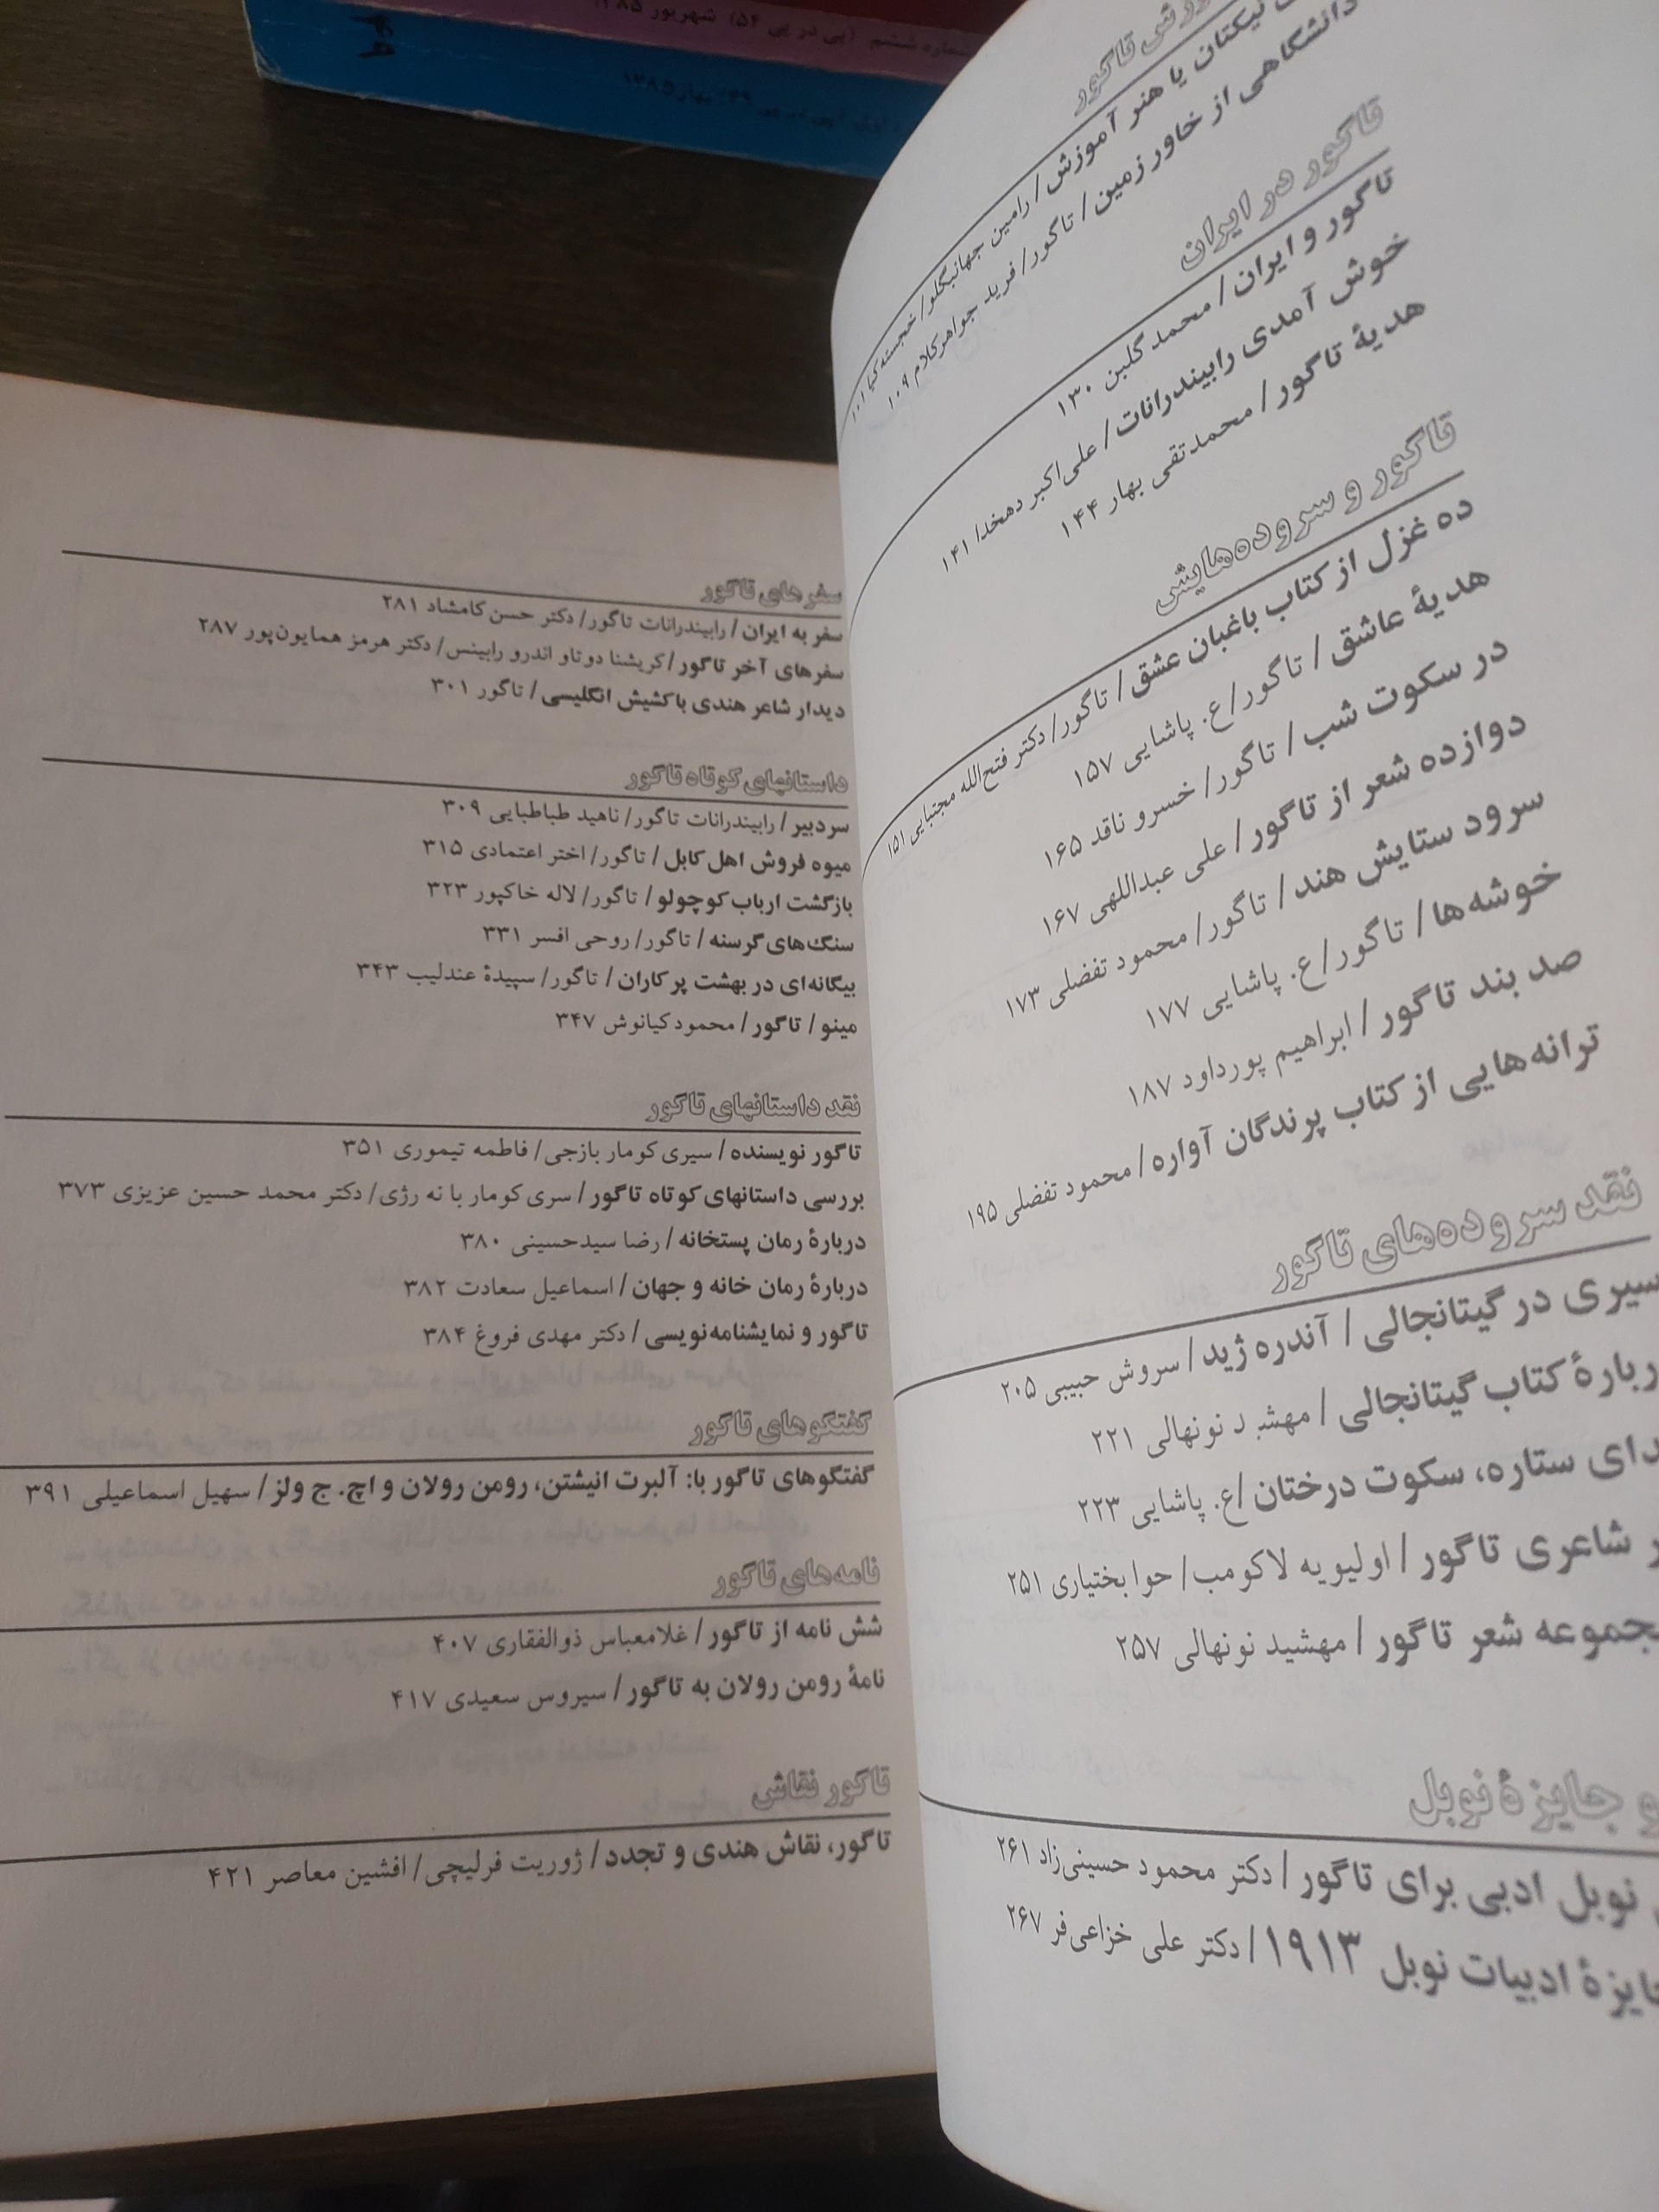 شماره ششم (پی در پی ۵۴) شهریور ۱۳۸۵
۴۹
تاگور
نیکتان یا هنر آموزش / رامین جهانبگلو / خجسته کیا ۱۰۱
دانشگاهی از خاور زمین / تاگور / فرید جواهرکلام ۱۰۹
تاگور در ایران
تاگور و ایران / محمد گلبن ۱۳۰
خوش آمدی رابیندرانات / علی‌اکبر دهخدا ۱۴۱
هدیهٔ تاگور / محمدتقی بهار ۱۴۴
تاگور و سروده‌هایش
ده غزل از کتاب باغبان عشق / تاگور / دکتر فتح‌الله مجتبایی ۱۵۱
هدیهٔ عاشق / تاگور / ع. پاشایی ۱۵۷
در سکوت شب / تاگور / خسرو ناقد ۱۶۵
دوازده شعر از تاگور / علی عبداللهی ۱۶۷
سرود ستایش هند / تاگور / محمود تفضلی ۱۷۳
خوشه‌ها / تاگور / ع. پاشایی ۱۷۷
صد بند تاگور / ابراهیم پورداود ۱۸۷
ترانه‌هایی از کتاب پرندگان آواره / محمود تفضلی ۱۹۵
نقد سروده‌های تاگور
سیری در گیتانجالی / آندره ژید / سروش حبیبی ۲۰۵
ربارهٔ کتاب گیتانجالی / مهشید نونهالی ۲۲۱
دای ستاره، سکوت درختان / ع. پاشایی ۲۲۳
ر شاعری تاگور / اولیویه لاکومب / حوا بختیاری ۲۵۱
جموعه شعر تاگور / مهشید نونهالی ۲۵۷
و جایزهٔ نوبل
نوبل ادبی برای تاگور / دکتر محمود حسینی‌زاد ۲۶۱
جایزهٔ ادبیات نوبل ۱۹۱۳ / دکتر علی خزاعی‌فر ۲۶۷
سفرهای تاگور
سفر به ایران / رابیندرانات تاگور / دکتر حسن کامشاد ۲۸۱
سفرهای آخر تاگور / کریشنا دوتاو اندرو رابینس / دکتر هرمز همایون‌پور ۲۸۷
دیدار شاعر هندی با کشیش انگلیسی / تاگور ۳۰۱
داستانهای کوتاه تاگور
سردبیر / رابیندرانات تاگور / ناهید طباطبایی ۳۰۹
میوه فروش اهل کابل / تاگور / اختر اعتمادی ۳۱۵
بازگشت ارباب کوچولو / تاگور / لاله خاکپور ۳۲۳
سنگ‌های گرسنه / تاگور / روحی افسر ۳۳۱
بیگانه‌ای در بهشت پرکاران / تاگور / سپیدهٔ عندلیب ۳۴۳
مینو / تاگور / محمود کیانوش ۳۴۷
نقد داستانهای تاگور
تاگور نویسنده / سیری کومار بازجی / فاطمه تیموری ۳۵۱
بررسی داستانهای کوتاه تاگور / سری کومار با نه رژی / دکتر محمد حسین عزیزی ۳۷۳
دربارهٔ رمان پستخانه / رضا سیدحسینی ۳۸۰
دربارهٔ رمان خانه و جهان / اسماعیل سعادت ۳۸۲
تاگور و نمایشنامه‌نویسی / دکتر مهدی فروغ ۳۸۴
گفتگوهای تاگور
گفتگوهای تاگور با: آلبرت انیشتن، رومن رولان و اچ. ج ولز / سهیل اسماعیلی ۳۹۱
نامه‌های تاگور
شش نامه از تاگور / غلامعباس ذوالفقاری ۴۰۷
نامهٔ رومن رولان به تاگور / سیروس سعیدی ۴۱۷
تاگور نقاش
تاگور، نقاش هندی و تجدد / ژوریت فرلیچی / افشین معاصر ۴۲۱